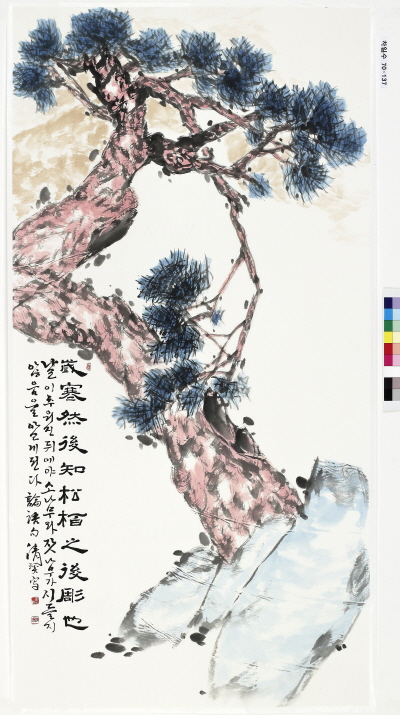 歲寒然後知松栢之後彫也
날이 추워진 뒤에야 소나무와 잣나무가 시들지
않음을 알게 된다 論語句 寫
70-137